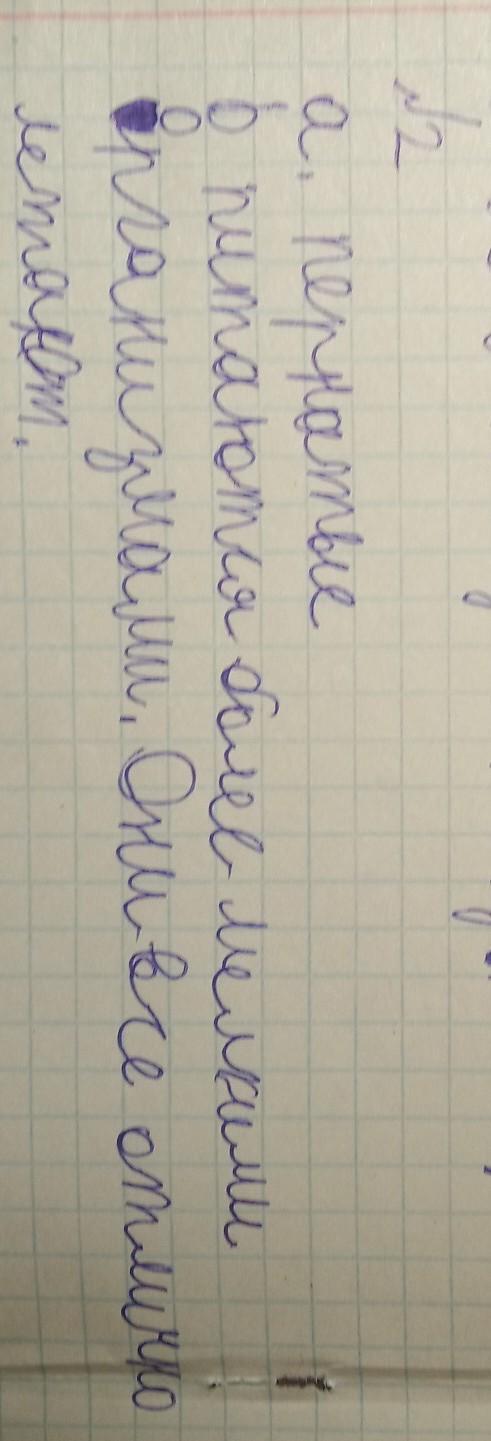 №2
а. пернатые
б питаются более мелкими
организмами. Они все отлично
летают.